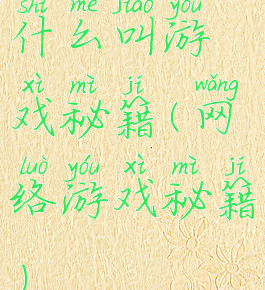 shí me jiào yóu
什么叫游
xì mì jí wǎng
戏秘籍(网
luò yóu xì mì jí
络游戏秘籍
)